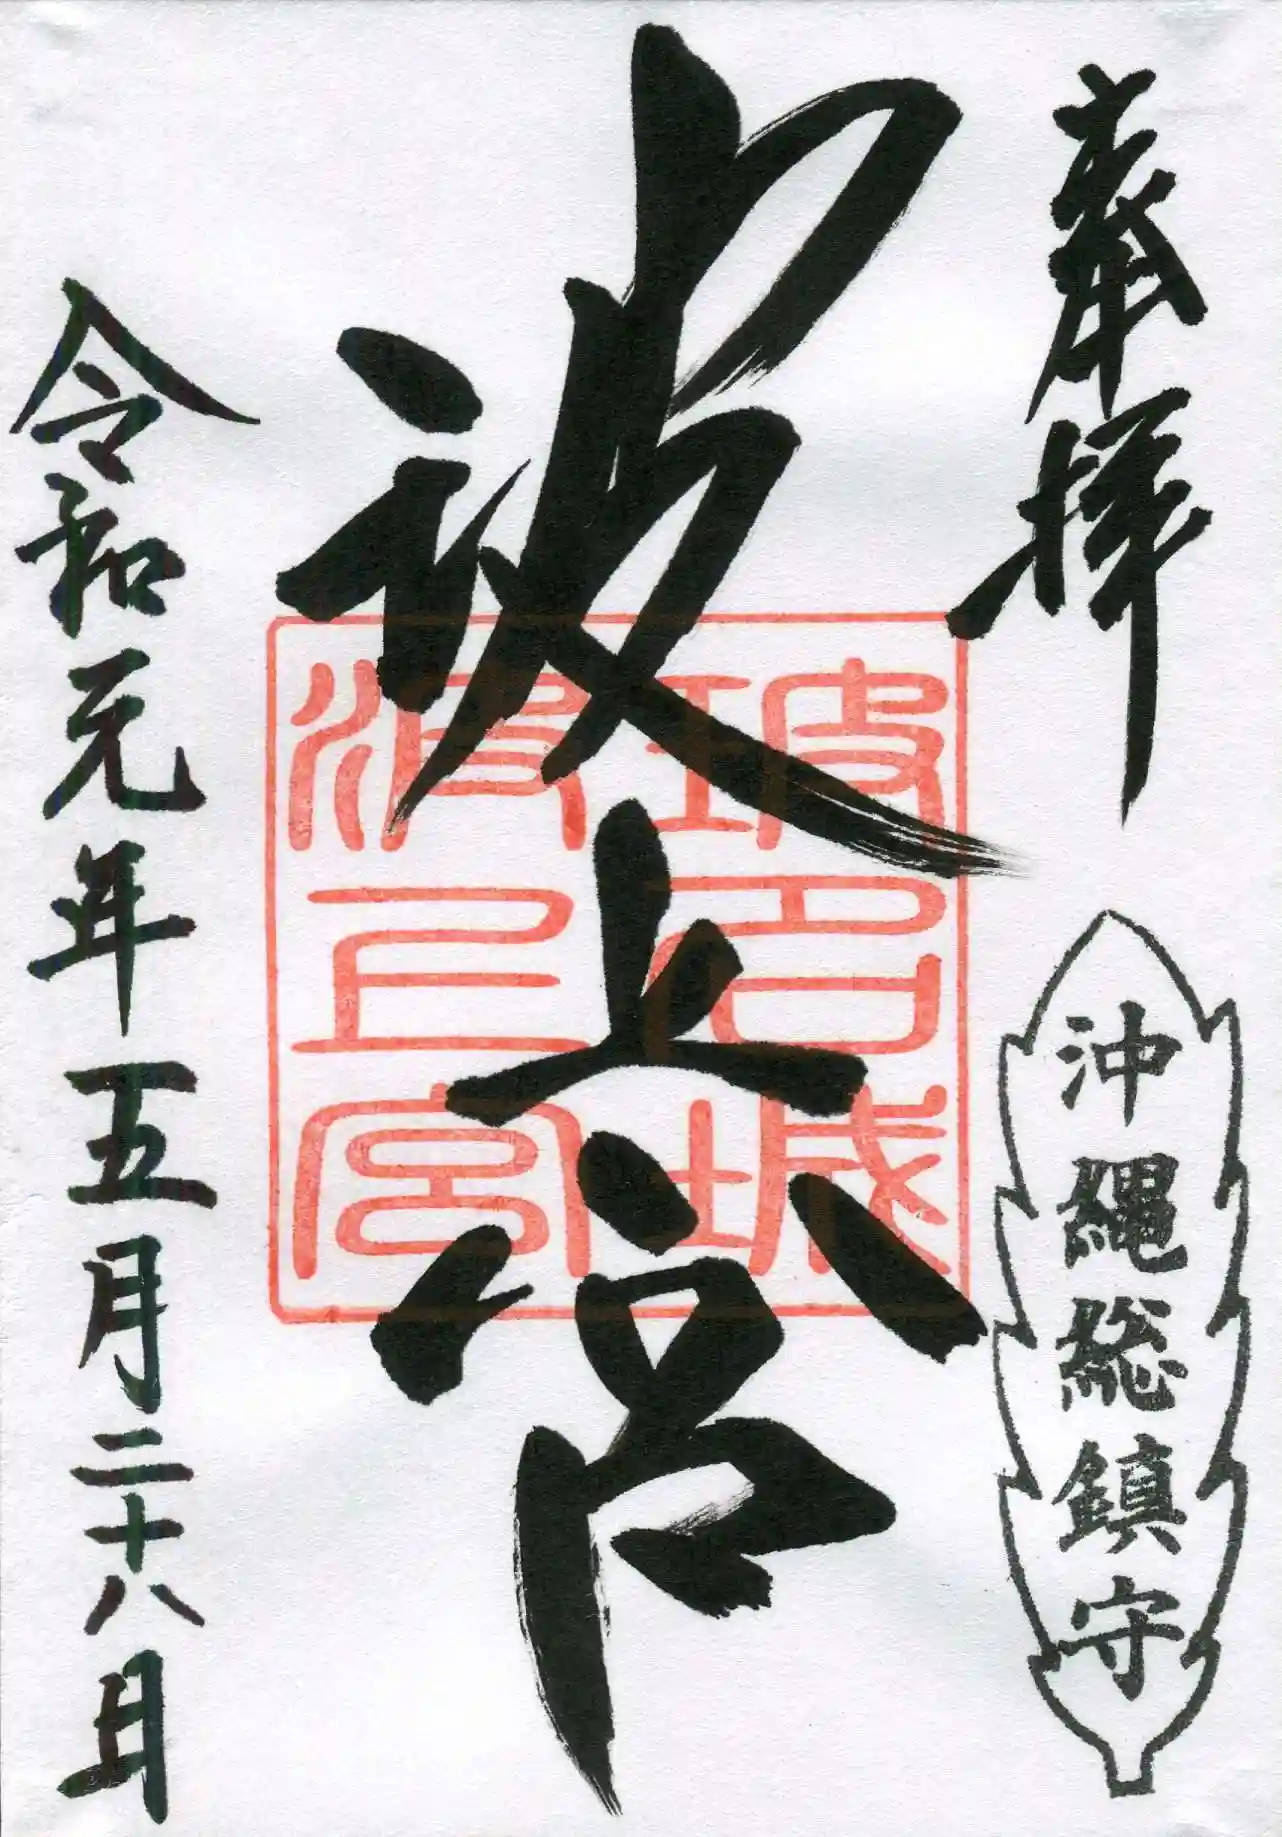 奉拝
沖縄総鎮守
波上宮
波上宮
令和元年五月二十八日